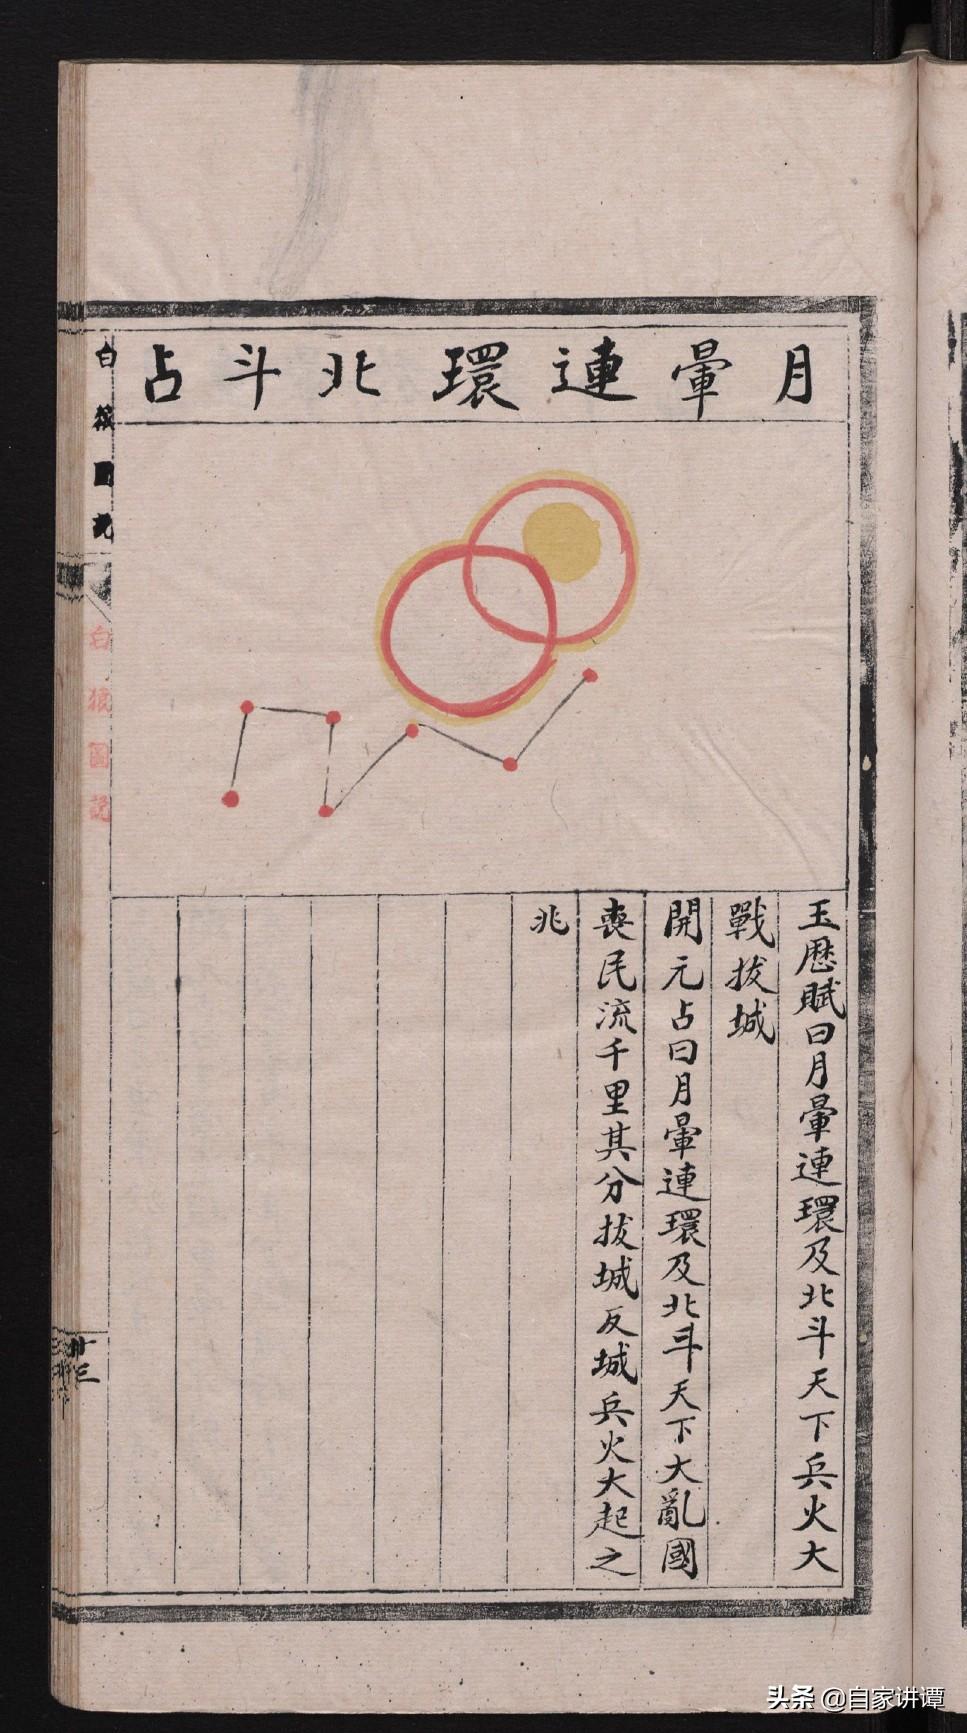 月暈連環北斗占
玉歷賦曰月暈連環及北斗天下兵火大
戰拔城
開元占曰月暈連環及北斗天下大亂國
喪民流千里其分拔城反城兵火大起之
兆
白猿圖說
白猿圖說
廿三
头条 @自家讲谭